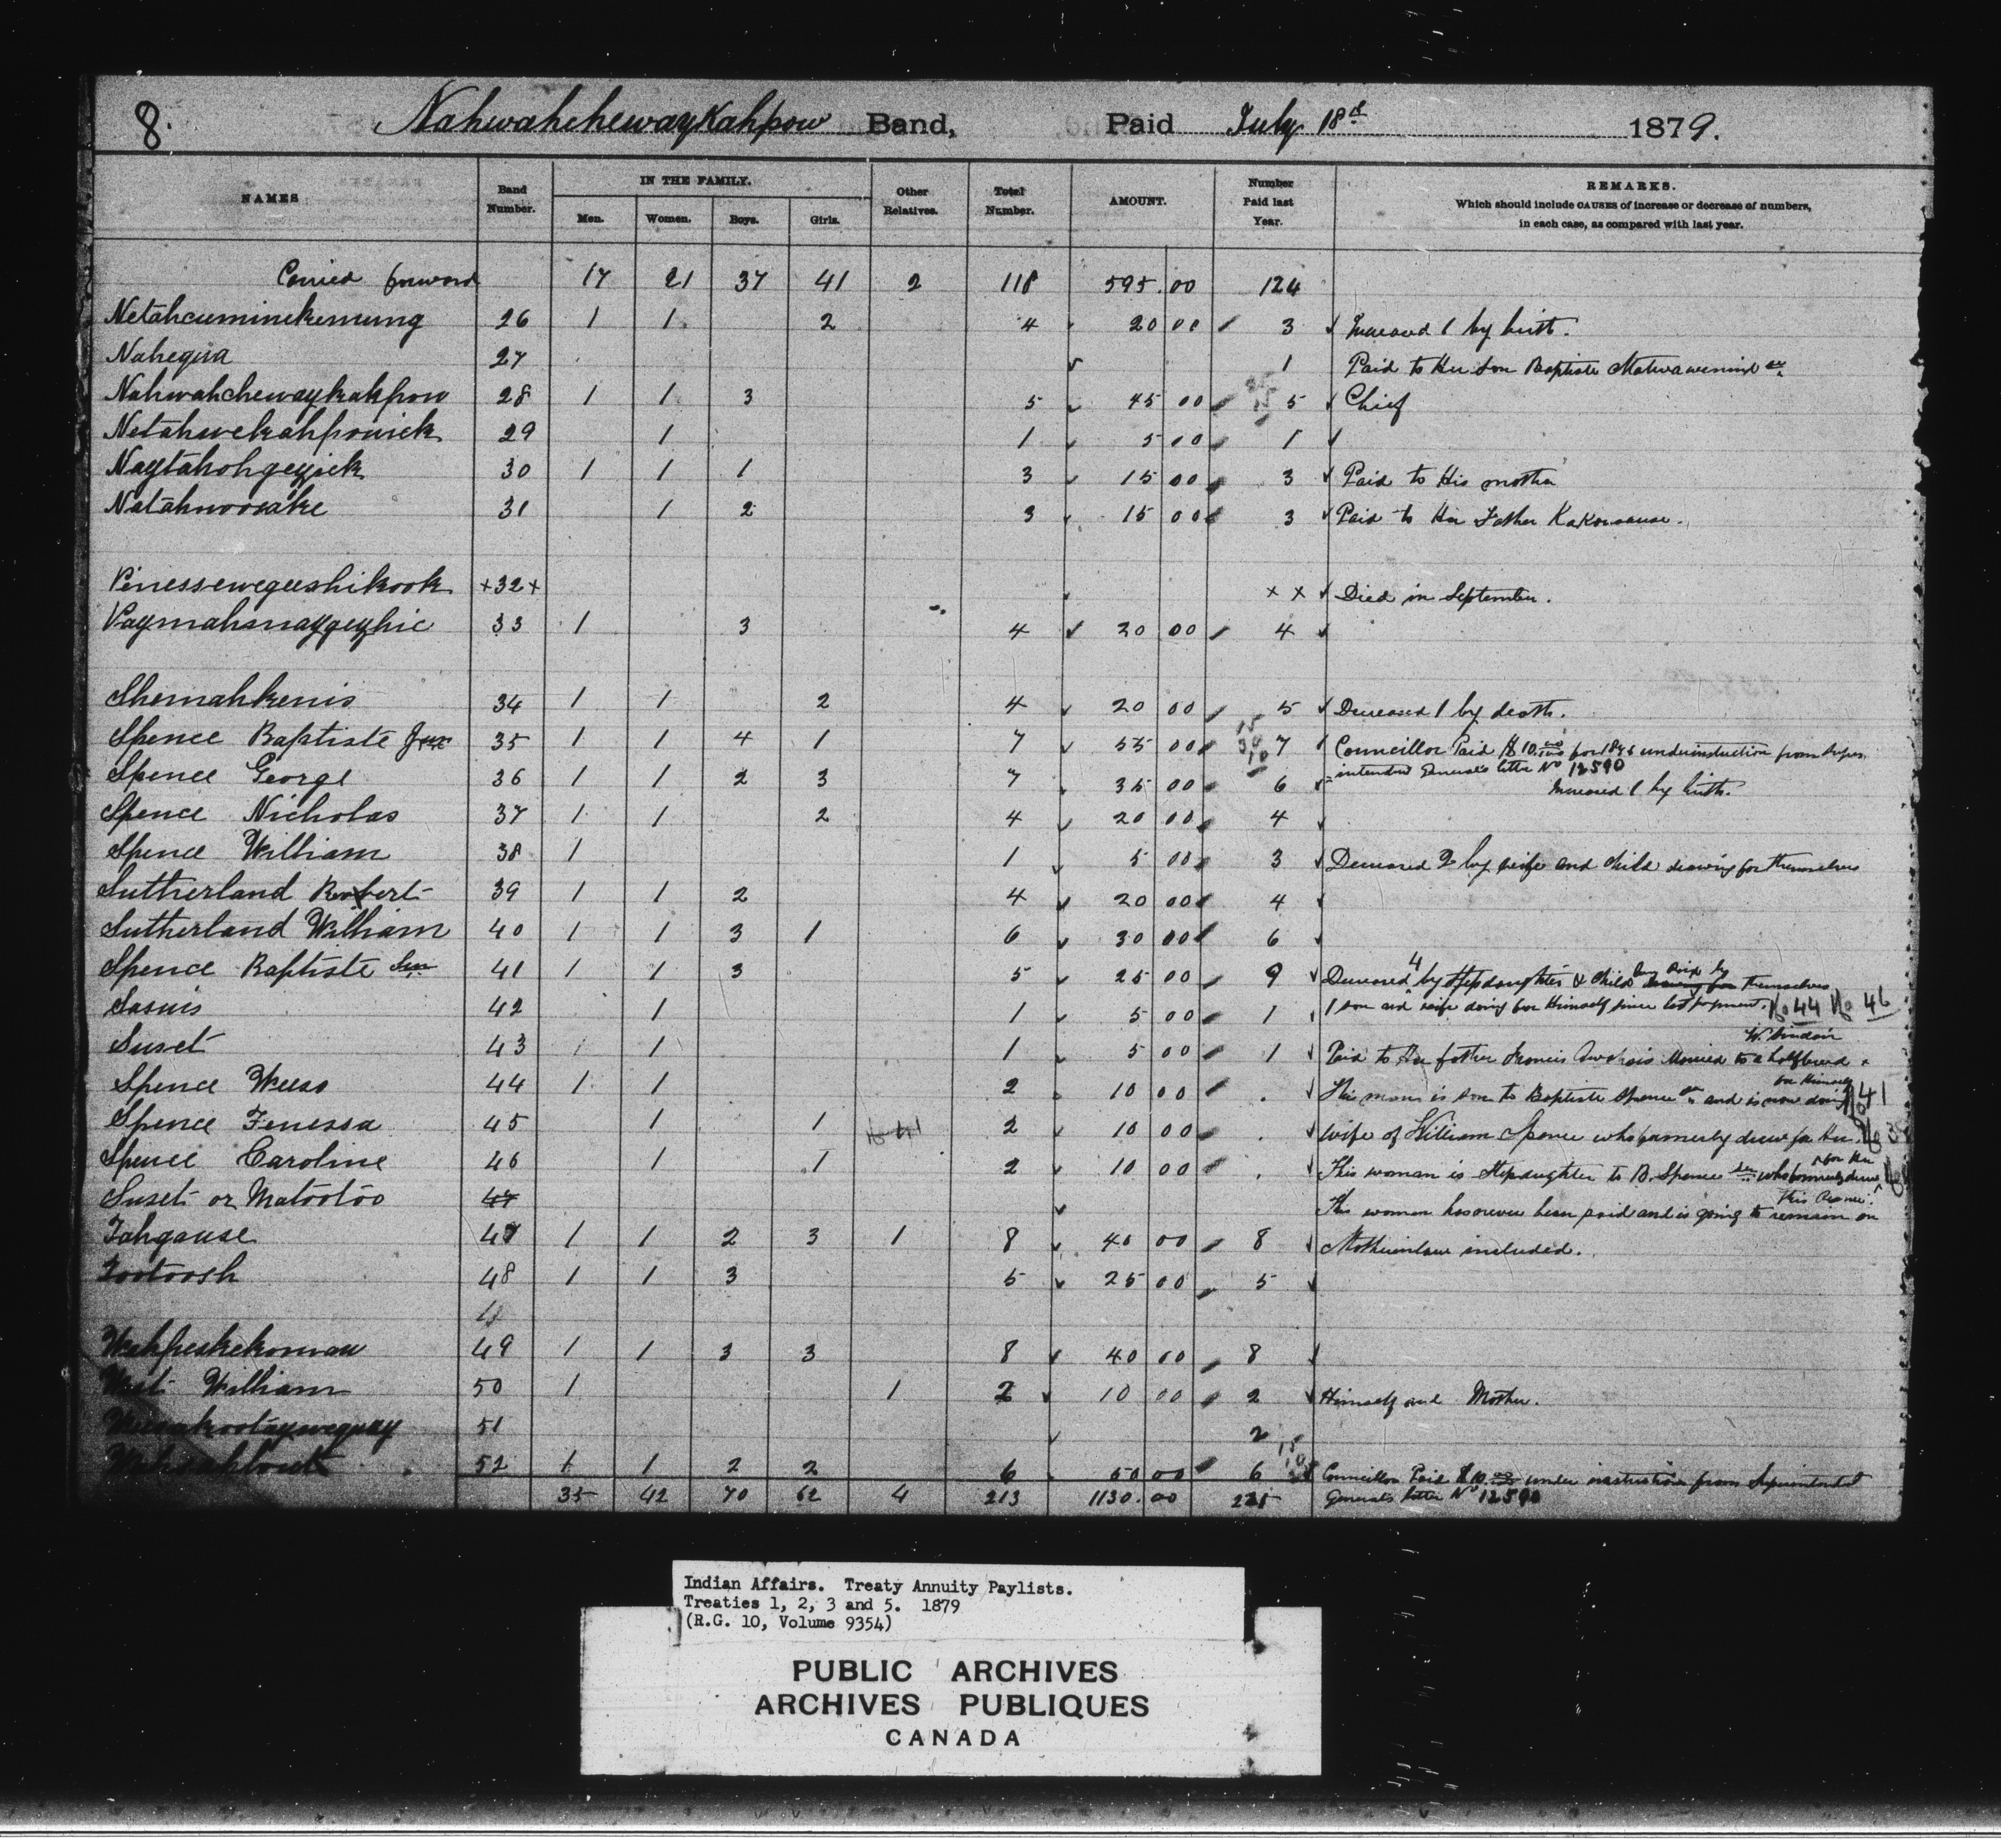 8.
Nahwahchewaykahpow Band, Paid July 18th 1879.
NAMES Band Number. IN THE FAMILY. Men. Women. Boys. Girls. Other Relatives. Total Number. AMOUNT. Number Paid last Year. REMARKS.
Which should include CAUSES of increase or decrease of numbers,
in each case, as compared with last year.
Carried forward 17 21 37 41 2 118 595.00 124
Netahcuminekemung 26 1 1 2 4 20 00 3 Increased 1 by birth.
Nahequa 27 1 Paid to Her Son Baptiste
Nahwahchewaykahpow 28 1 1 3 5 45 00 5 Chief
Netahwekahpowick 29 1 1 5 00 1
Naytahohgeyjick 30 1 1 1 3 15 00 3 Paid to His mother
Natahwoosake 31 1 2 3 15 00 3 Paid to Her Father Kakousause.
Penessewegueshikook +32+ x x Died in September.
Paymahsnaygeyhic 33 1 3 4 20 00 4
Shemahkenis 34 1 1 2 4 20 00 5 Decreased 1 by death.
Spence Baptiste Jun 35 1 1 4 1 7 55 00 7 Councillor Paid $10.00 for 1878 under instruction from Super-
intendent General's letter No 12590
Spence George 36 1 1 2 3 7 35 00 6 Increased 1 by birth.
Spence Nicholas 37 1 1 2 4 20 00 4
Spence William 38 1 1 5 00 3 Decreased 2 by wife and child drawing for themselves
Sutherland Robert 39 1 1 2 4 20 00 4
Sutherland William 40 1 1 3 1 6 30 00 6
Spence Baptiste Sen 41 1 1 3 5 25 00 9 Decreased 4 by Stepdaughter & child being Paid by drawing for themselves
Sasuis 42 1 1 5 00 1 1 son and wife doing for Himself since last payment. No 44 No 46
Suset 43 1 1 5 00 1 Paid to Her father Francis Married to a halfbreed W. Sinclair
Spence Weeso 44 1 1 2 10 00 This man is son to Baptiste Spence Sn and is now doing for Himself No 41
Spence Fenessa 45 1 1 No 41 2 10 00 wife of William Spence who formerly drew for Her. No 38
Spence Caroline 46 1 1 2 10 00 This woman is Stepdaughter to B. Spence Sen who formerly drew for Her
Suset or Matootoo 47 This woman has never been paid and is going to remain on this Reserve.
Tahgause 47 1 1 2 3 1 8 40 00 8 Motherinlaw included.
Tootoosh 48 1 1 3 5 25 00 5
Wahpeskekomau 49 1 1 3 3 8 40 00 8
West William 50 1 1 2 10 00 2 Himself and Mother.
51 2
52 1 1 2 2 6 50 00 6 Councillor Paid $10.00 under instruction from Superintendent
35 42 70 62 4 213 1130.00 225 Generals letter No 12590
Indian Affairs. Treaty Annuity Paylists.
Treaties 1, 2, 3 and 5. 1879
(R.G. 10, Volume 9354)
PUBLIC ARCHIVES
ARCHIVES PUBLIQUES
CANADA